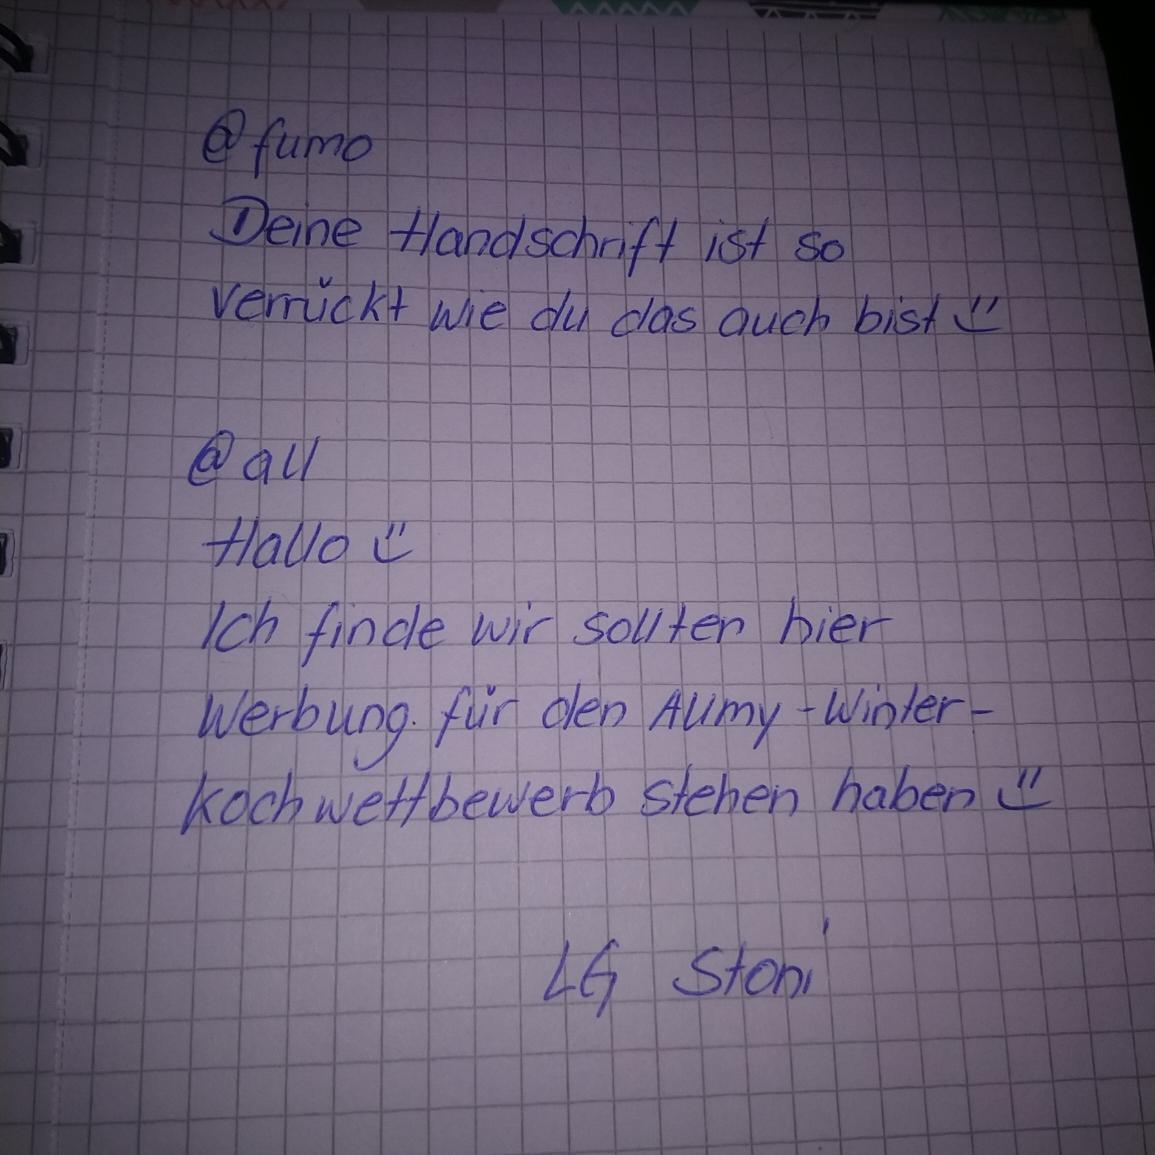 @fumo
Deine Handschrift ist so
verrückt wie du das auch bist ü
@all
Hallo ü
Ich finde wir sollten hier
Werbung für den Allmy-Winter-
kochwettbewerb stehen haben ü
LG Stoni